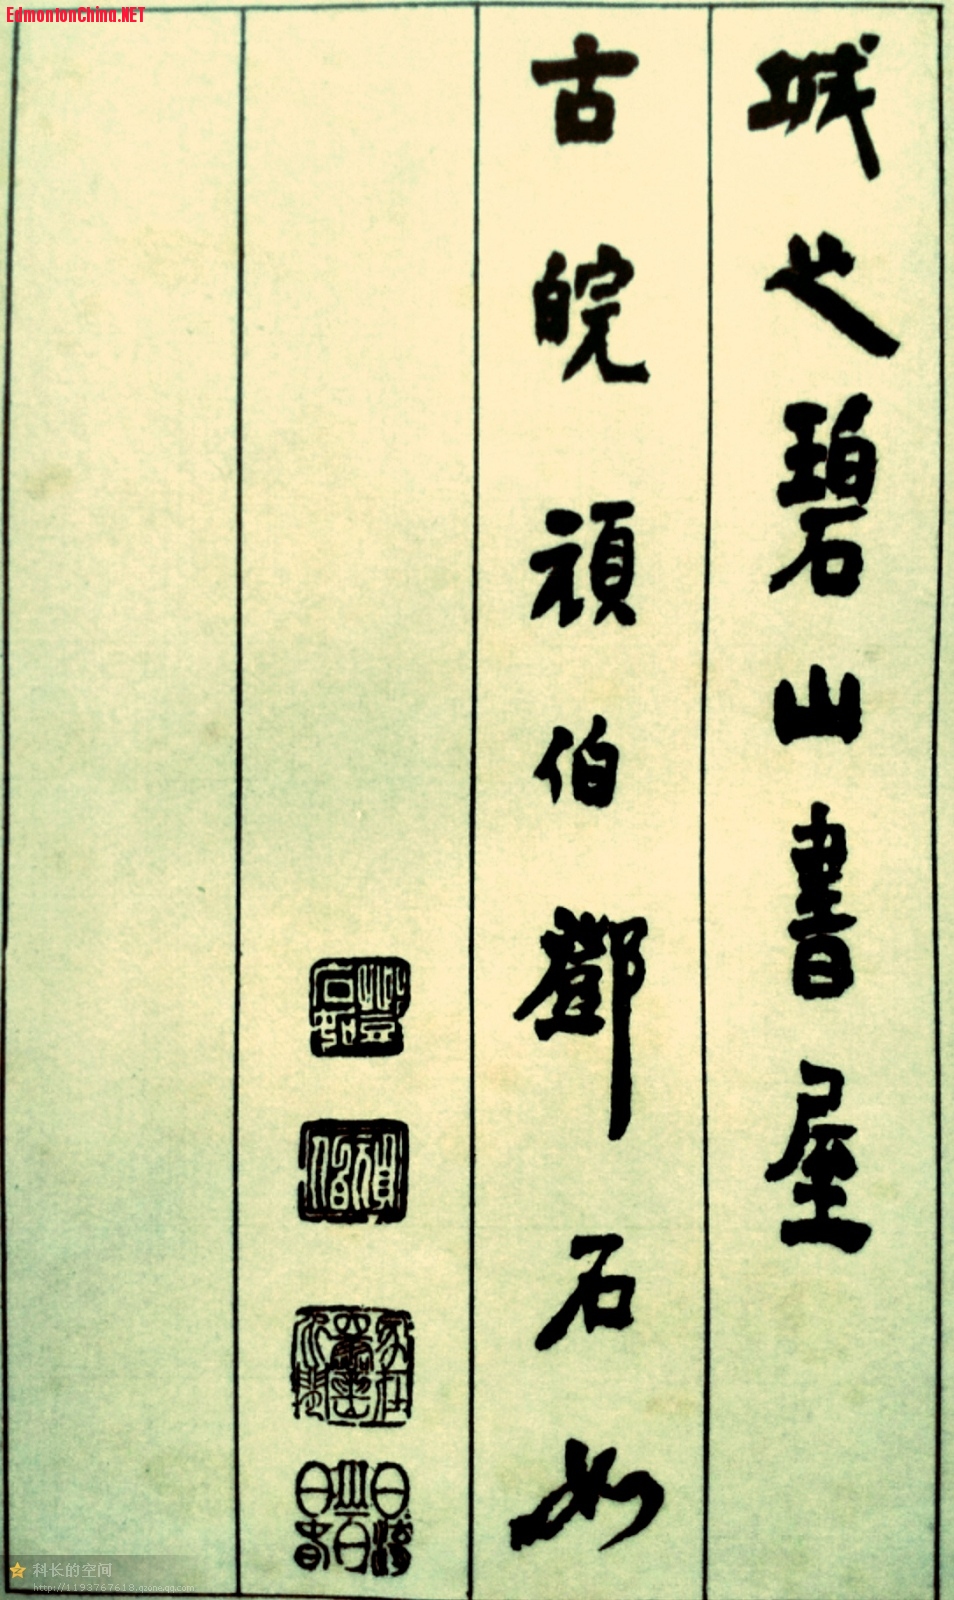 EdmontonChina.NET
城之碧山書屋
古皖頑伯鄧石如
鄧石如
頑伯
家在四靈山水間
科长的空间
http://1193767618.qzone.qq.com